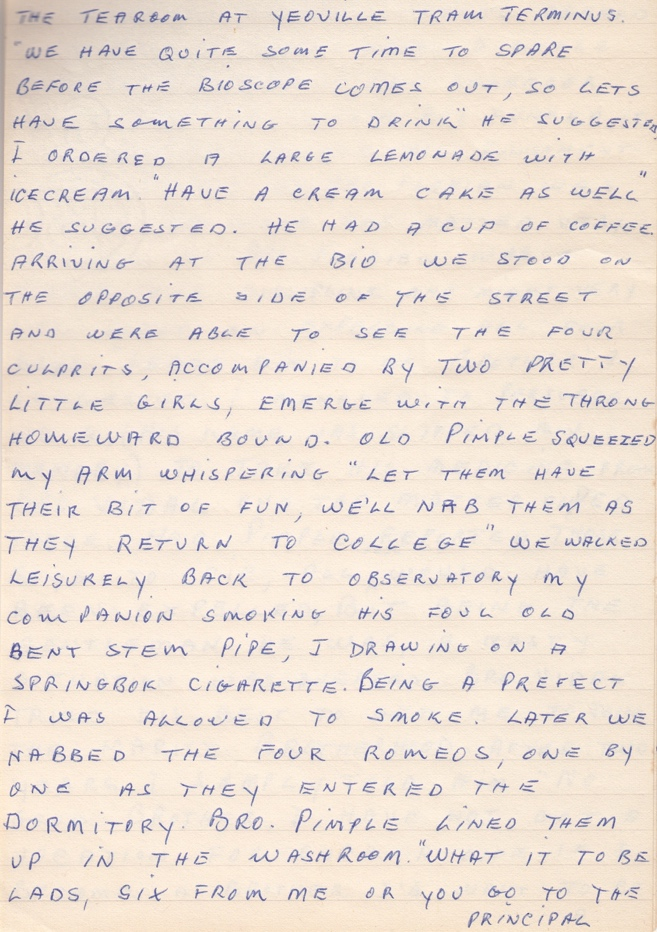 THE TEAROOM AT YEOVILLE TRAM TERMINUS.
"WE HAVE QUITE SOME TIME TO SPARE
BEFORE THE BIOSCOPE COMES OUT, SO LETS
HAVE SOMETHING TO DRINK" HE SUGGESTED
I ORDERED A LARGE LEMONADE WITH
ICECREAM. "HAVE A CREAM CAKE AS WELL"
HE SUGGESTED. HE HAD A CUP OF COFFEE.
ARRIVING AT THE BIO WE STOOD ON
THE OPPOSITE SIDE OF THE STREET
AND WERE ABLE TO SEE THE FOUR
CULPRITS, ACCOMPANIED BY TWO PRETTY
LITTLE GIRLS, EMERGE WITH THE THRONG
HOMEWARD BOUND. OLD PIMPLE SQUEEZED
MY ARM WHISPERING "LET THEM HAVE
THEIR BIT OF FUN, WE'LL NAB THEM AS
THEY RETURN TO COLLEGE" WE WALKED
LEISURELY BACK TO OBSERVATORY MY
COMPANION SMOKING HIS FOUL OLD
BENT STEM PIPE, I DRAWING ON A
SPRINGBOK CIGARETTE. BEING A PREFECT
I WAS ALLOWED TO SMOKE. LATER WE
NABBED THE FOUR ROMEOS, ONE BY
ONE AS THEY ENTERED THE
DORMITORY. BRO. PIMPLE LINED THEM
UP IN THE WASHROOM. "WHAT IT TO BE
LADS, SIX FROM ME OR YOU GO TO THE
PRINCIPAL